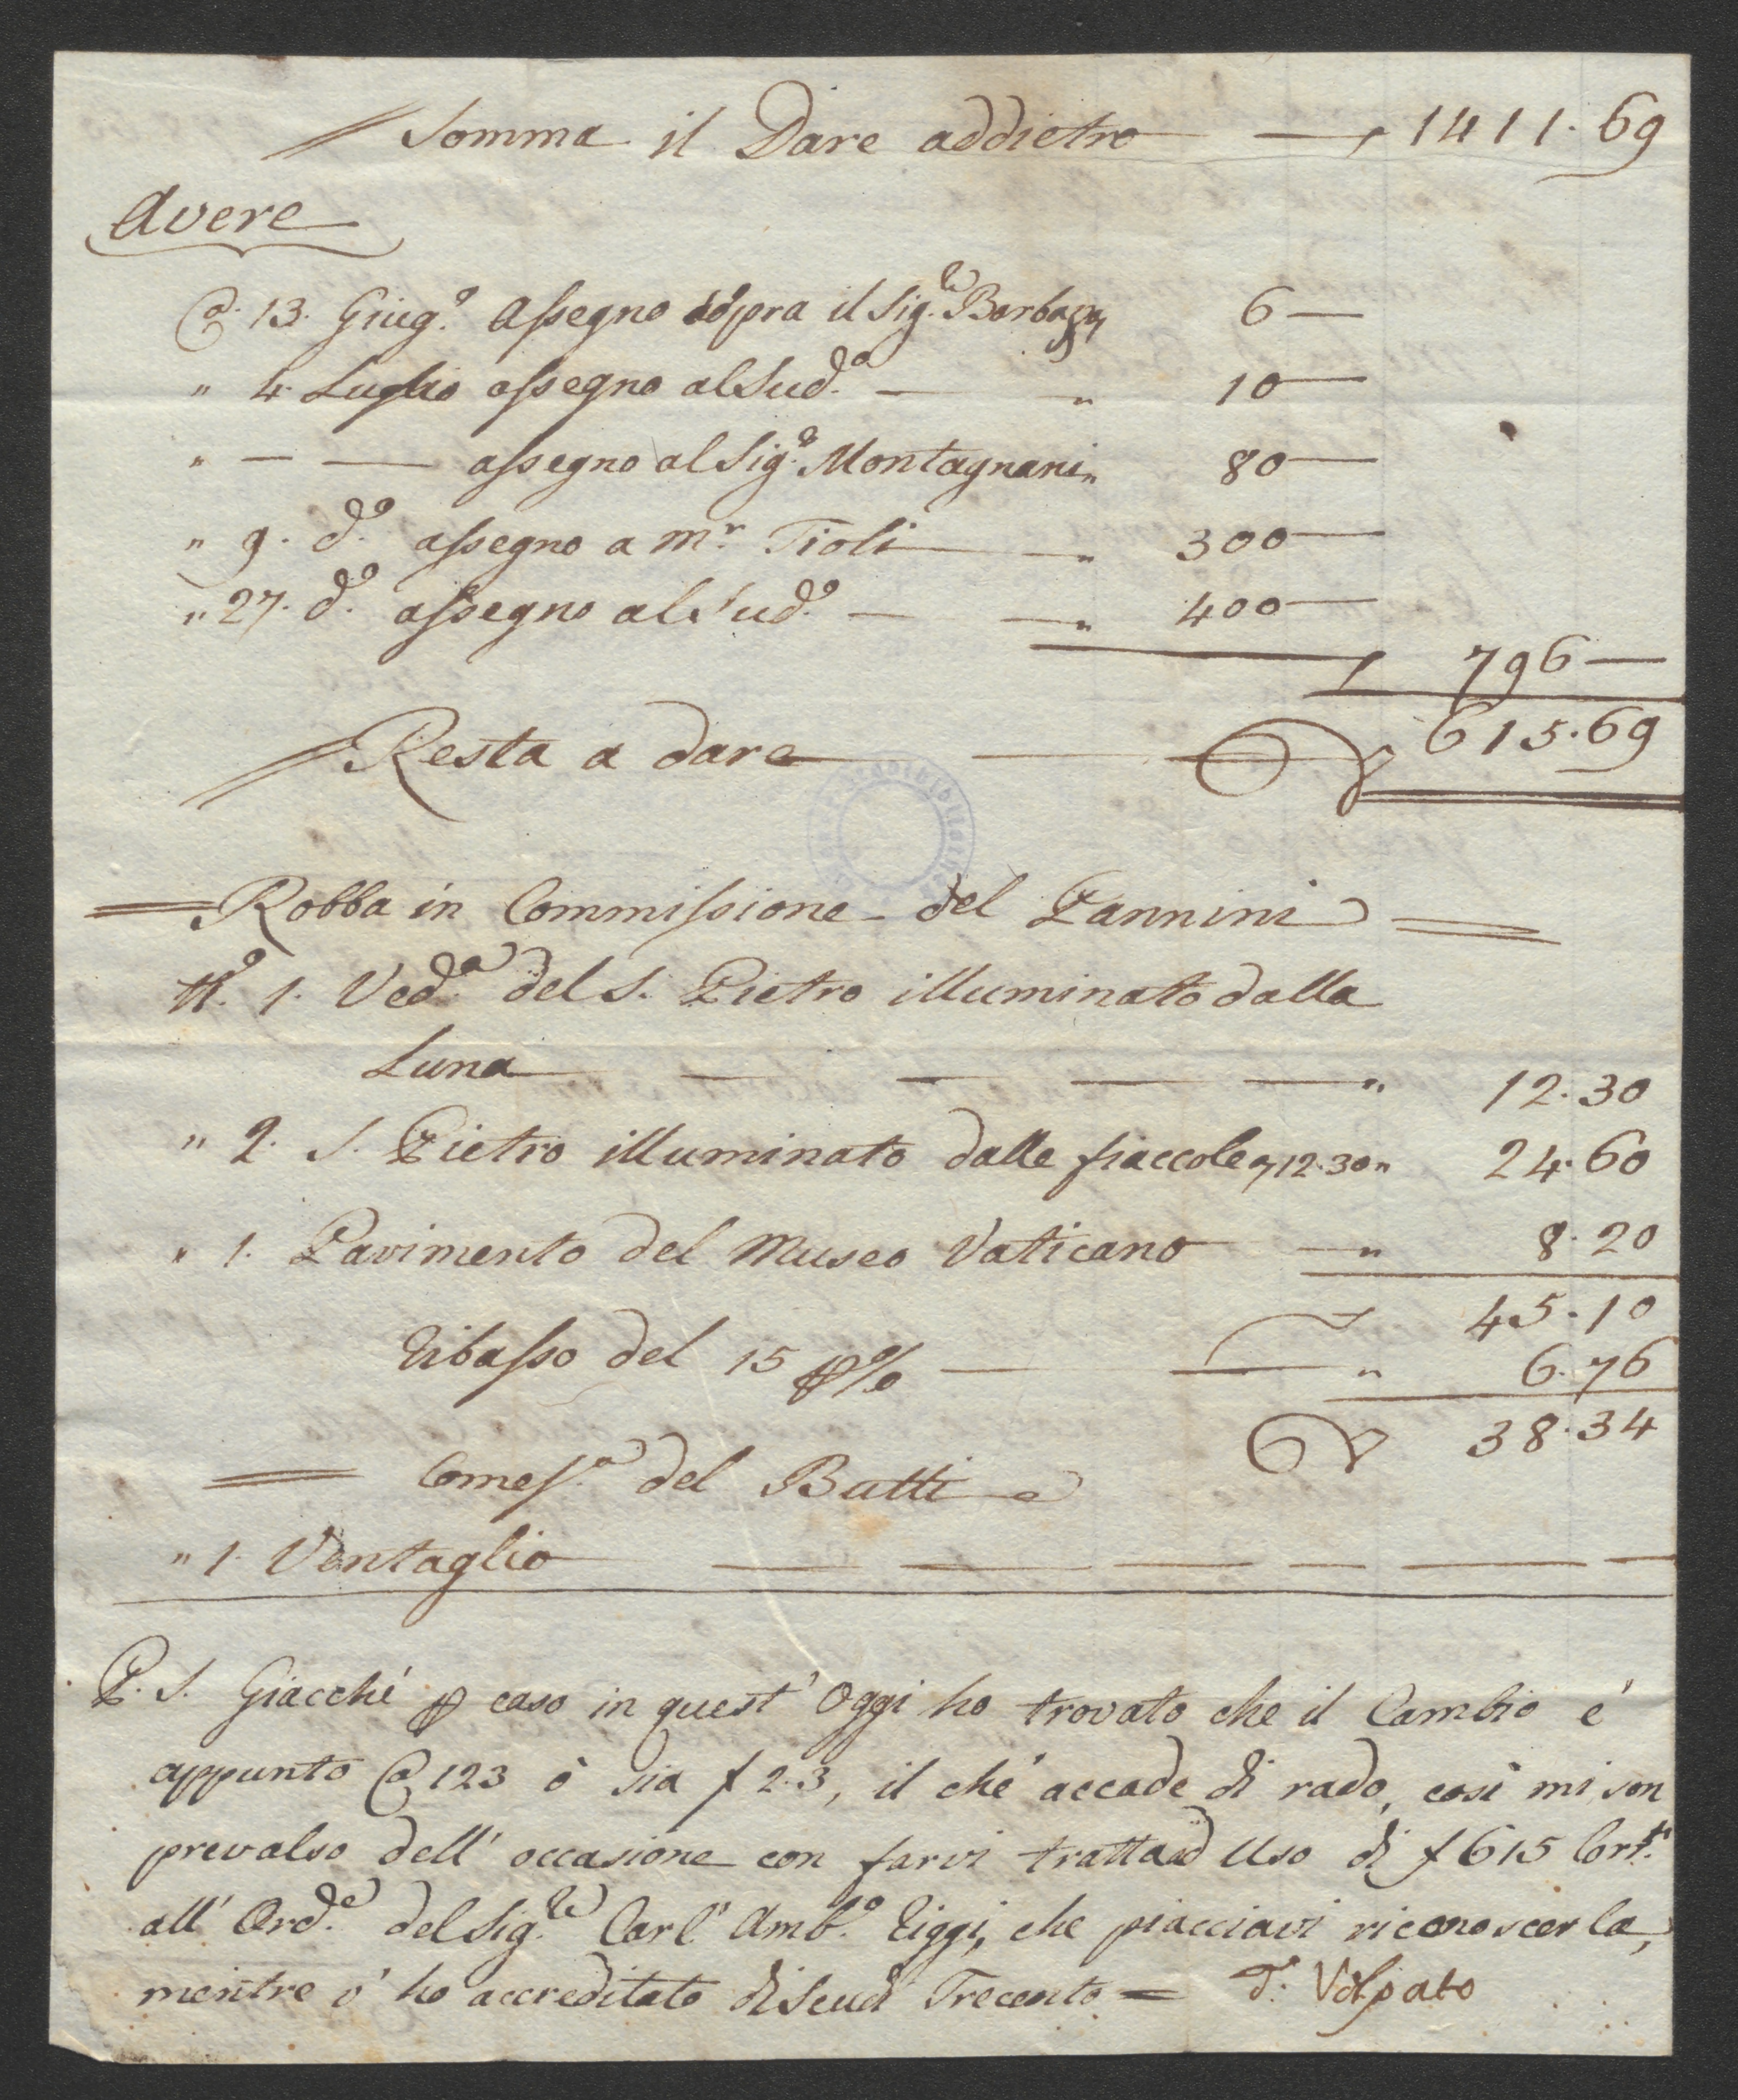 Somma il Dare addietro 1411.69
Avere
@ 13. Giug.o Assegno sopra il Sig.e Barbazza 6 —
" 4 Luglio assegno al Sud.o — " 10 —
" — — assegno al Sig.e Montagnani " 80 —
" 9. d.o assegno a Mr. Tioli — " 300 —
" 27. d.o assegno al Sud.o — " 400 —
796 —
Resta a dare — 615.69
Robba in Commissione del Pannini
N.o 1. Ved.a del S. Pietro illuminato dalla
Luna — — — — " 12.30
" 2. S. Pietro illuminato dalle fiaccole a 12.30 " 24.60
" 1. Pavimento del Museo Vaticano — " 8.20
45.10
Ribasso del 15 p% — " 6.76
38.34
Comes.e del Batti
" 1. Ventaglio — — — — — —
P.S. Giacché p caso in quest' Oggi ho trovato che il Cambio é
appunto @ 123 ó sia f 2.3, il ché accade di rado, cosi mi son
prevalso dell' occasione con farvi tratta ad Uso di f 615 Corr.ti
all' Ord.e del Sig.e Carl' Amb.o Riggi, che piacciavi riconoscerla,
mentre v' ho accreditato di Scudi Trecento = Volpato